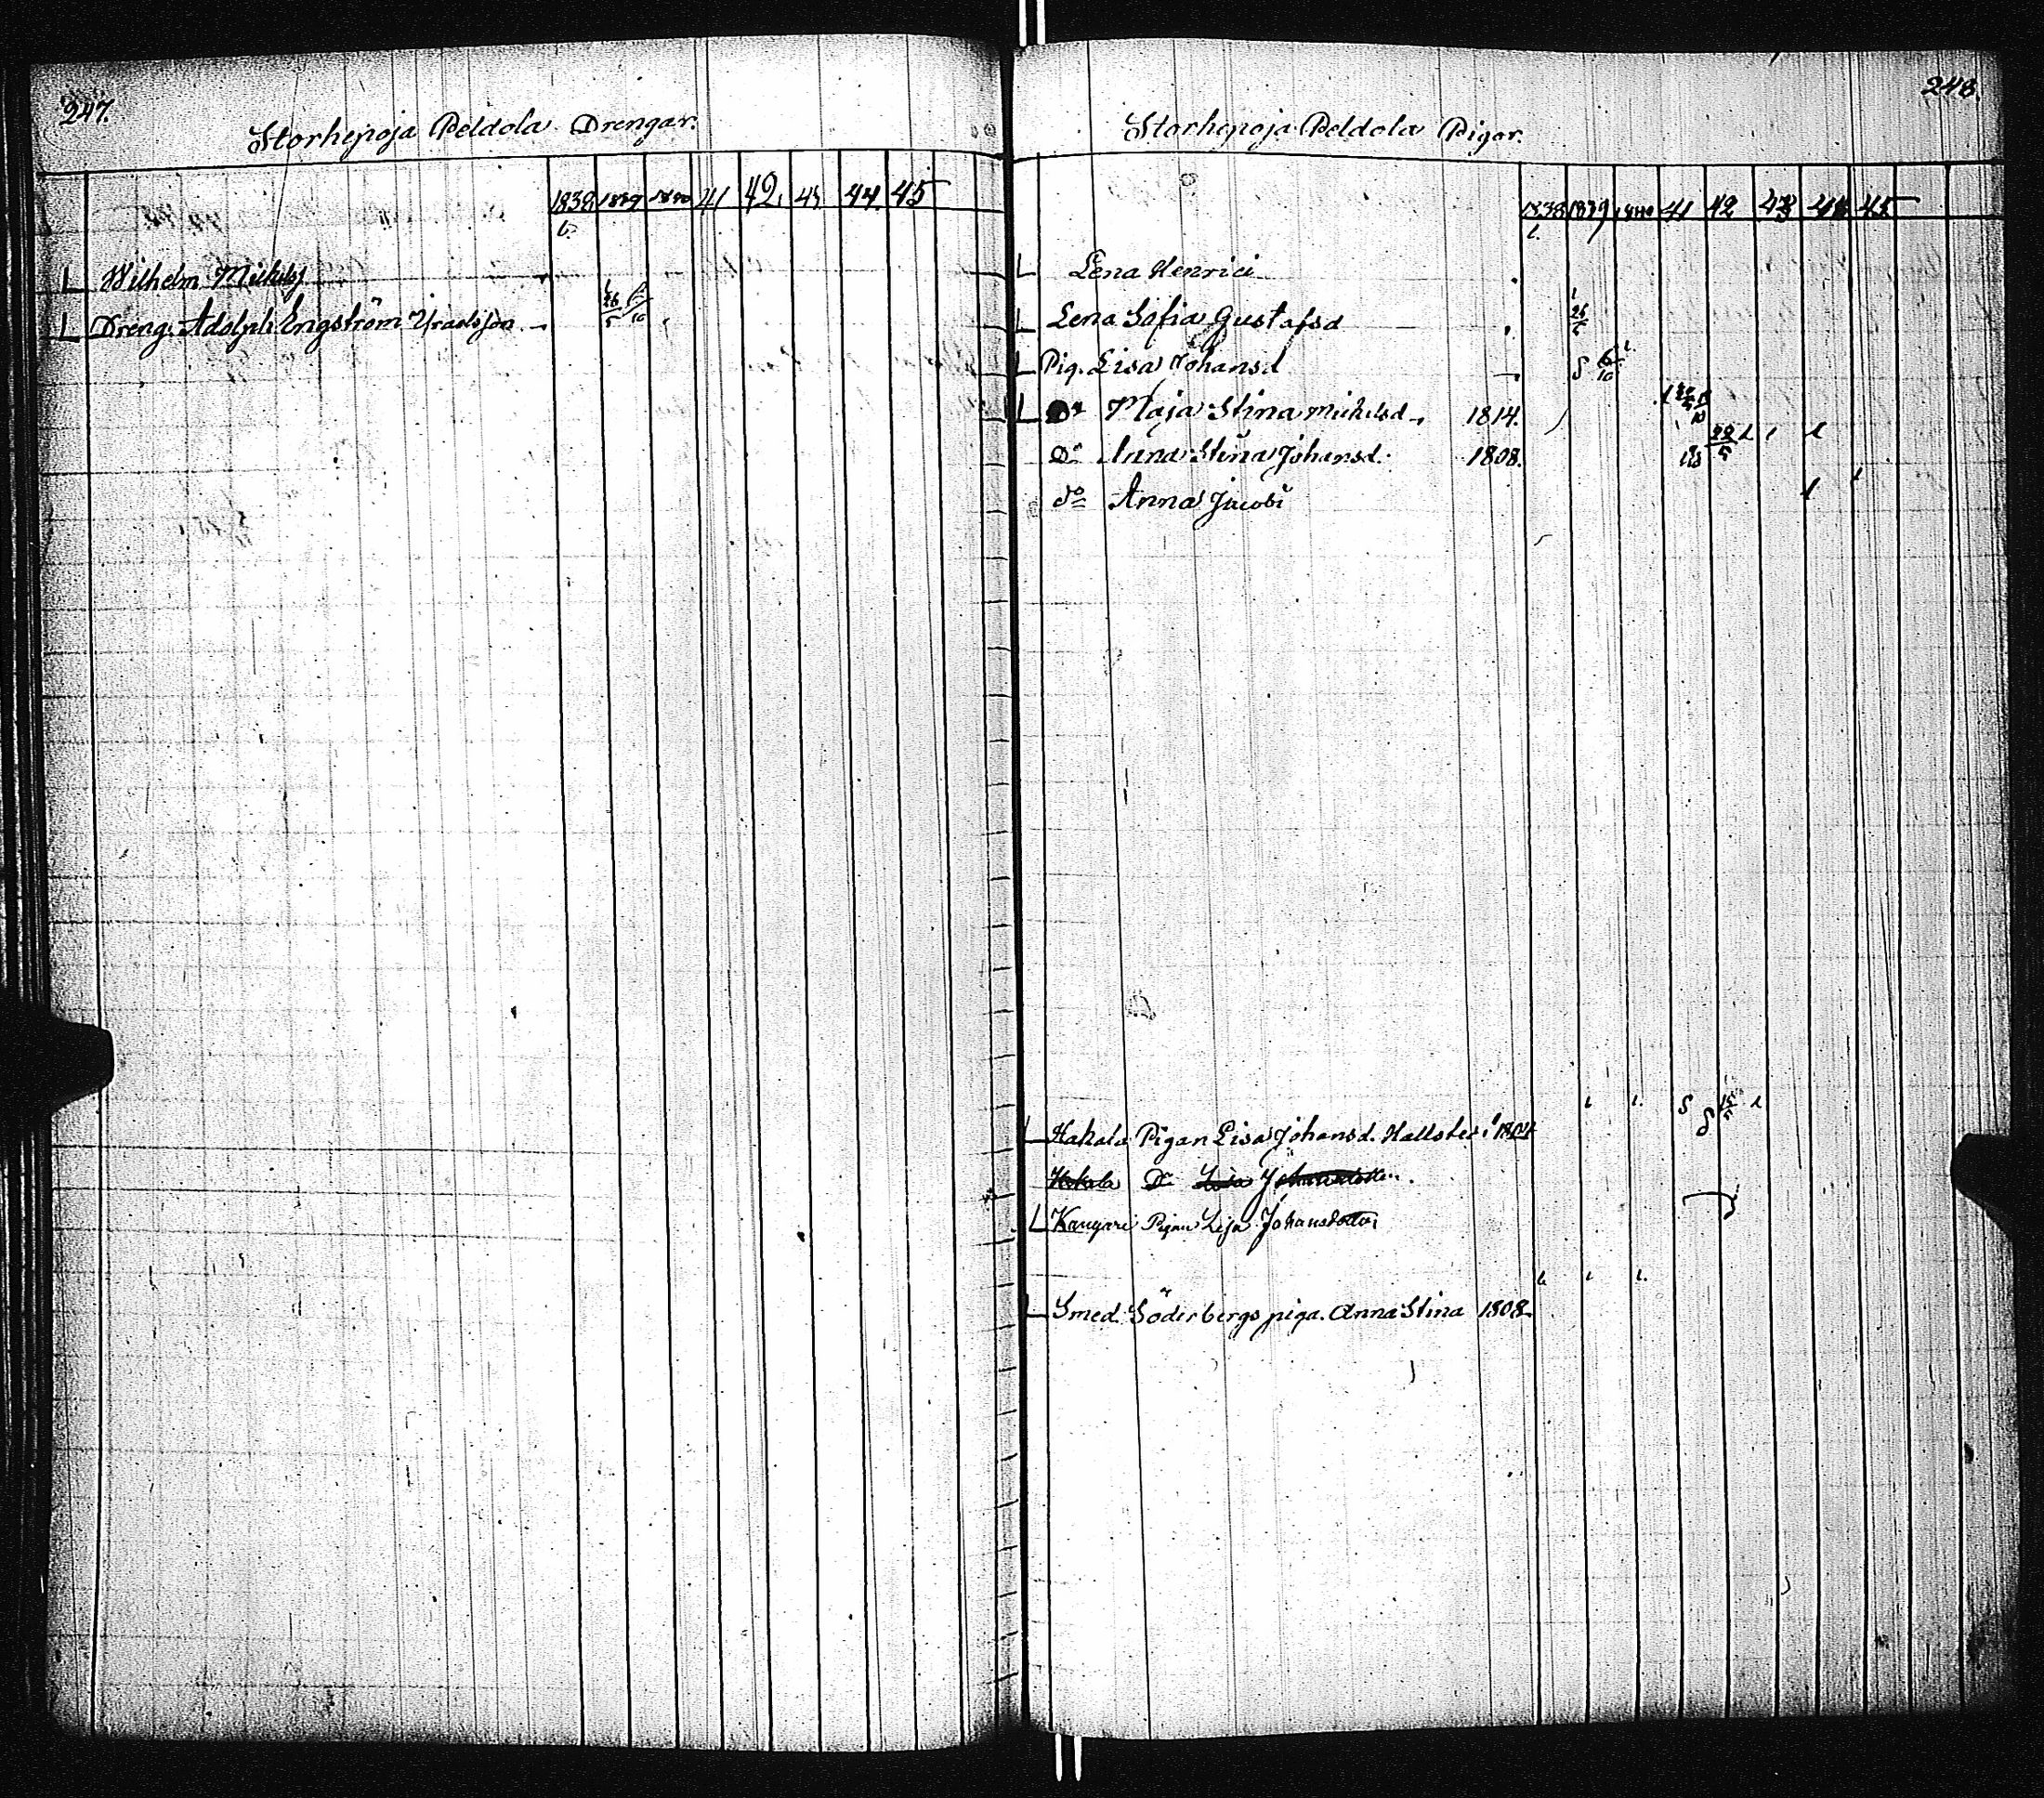 247.
Storhepoja Peldola Drengar.
1838 1839 1840 41 42. 43. 44. 45
b.
L Wilhelm Michelsj
L Dreng. Adolph Engström Israelsson
26/5 /10
248.
Storhepoja Peldola Pigor.
1838 1839 1840 41 42 43 44 45
b.
L Lena Henrici
L Lena Safia Gustafsd
26/5
L Pig. Lisa Johansd
S 6/10
L Do Maja Stina Michelsd 1814.
Do Anna Stina Johansd. 1808.
22/5
do Anna Jacobi
S 15/5
L Hakala Pigan Lisa Johansd. 1804
Hakala Do Lisa Johansdotter.
L Kangari Pigan Lisa Johansdotter
L Smed. Söderbergs piga. Anna Stina 1808.